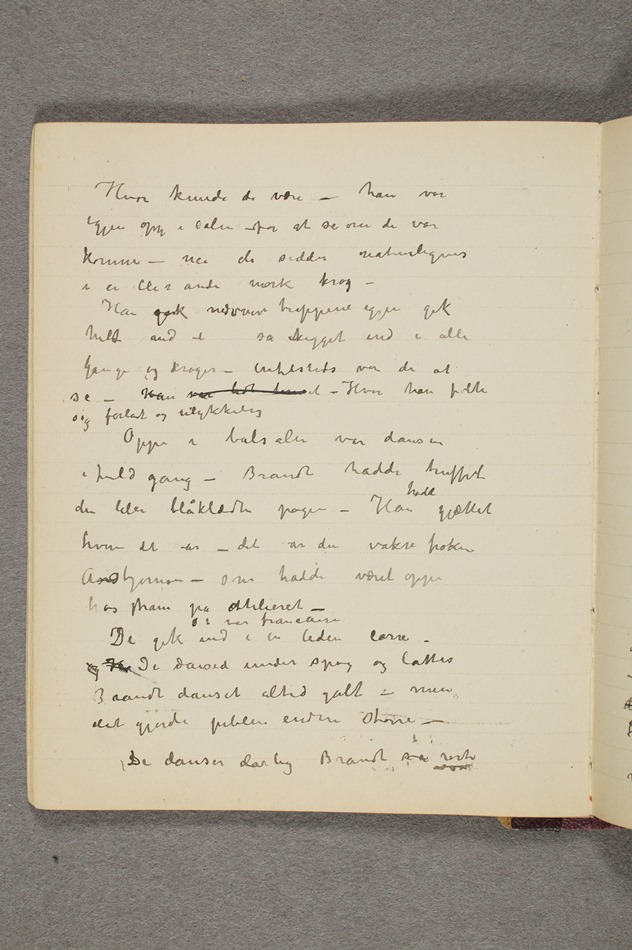 Hvor kunde de være – han var
igjen op i salen for at se om de var
kommen – nei de sidder naturligvis
i en eller anden mørk krog –
Han gik nedover trappene igjen gik
helt ind i så kigget ind i alle
gange og kroger – intetsteds var de at
se – Han var – Hvor han følte
sig forlat og ulykkelig
Oppe i balsalen var dansen
i fuld gang – Brandt hadde truffet
den lille blåklædte pagen – Han hadde gjættet
hvem det var – det var den vakre frøken
– som hadde været oppe
hos ham på atelieret –
Det var francaise
De gik ind i en liden carre –
og De dansed under spøg og latter
Brandt danset altid galt – men
det gjorde jublen endnu større –
De danser darlig Brandt sa